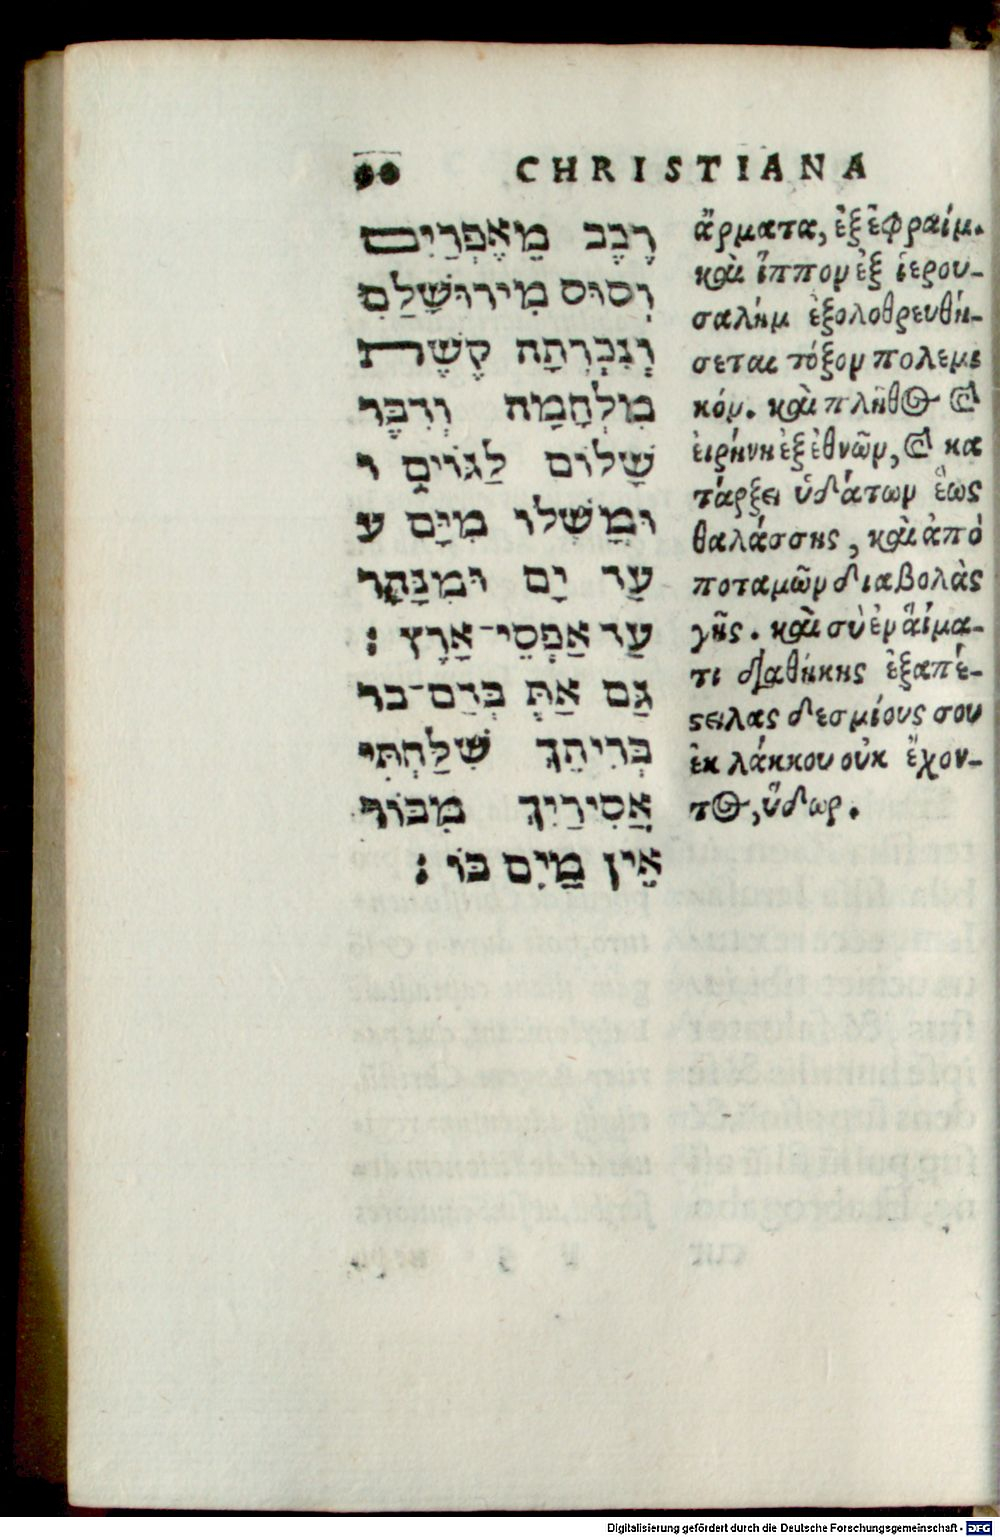 CHRISTIANA
רֶכֶב מֵאֶפְרַיִם
וְסוּס מִירוּשָׁלַםִ
וְנִכְרְתָה קֶשֶׁת
מִלְחָמָה וְדִבֶּר
שָׁלוֹם לַגּוֹיִם ו
וּמָשְׁלוּ מִיָּם ע
עַד יָם וּמִנָּהָר
עַד אַפְסֵי־אָרֶץ׃
גַּם אַתְּ בְּדַם־בר
בְּרִיתֵךְ שִׁלַּחְתִּי
אֲסִירַיִךְ מִבּוֹר
אֵין מַיִם בּוֹ׃
ἅρματα, ἐξ ἐφραίμ.
καὶ ἵππον ἐξ ἱερου-
σαλήμ ἐξολοθρευθή-
σεται τόξον πολεμι
κόν. καὶ πλῆθος καὶ
εἰρήνη ἐξ ἐθνῶν, καὶ κα
τάρξει ὑδάτων ἕως
θαλάσσης, καὶ ἀπό
ποταμῶν διαβολὰς
γῆς. καὶ σὺ ἐν αἵμα-
τι διαθήκης ἐξαπέ-
στειλας δεσμίους σου
ἐκ λάκκου οὐκ ἔχον-
τος, ὕδωρ.
Digitalisierung gefördert durch die Deutsche Forschungsgemeinschaft - DFG